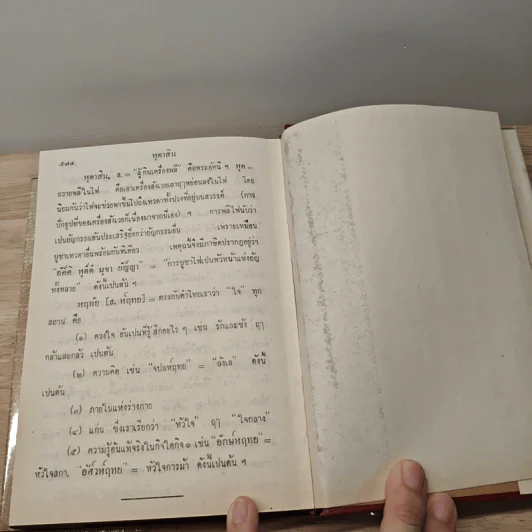 ๕๗๔ หุตาสิน
หุตาสิน, ส. = "ผู้กินเครื่องพลี" คือพระอัคนี ฯ หุต =
ถวายพลีในไฟ คือเอาเครื่องสังเวยเอาฤๅหย่อนลงในไฟ โดย
นิยมกันว่าไฟจะช่วยพาขึ้นไปถึงเทวดาทั้งปวงที่อยู่บนสวรรค์ (การ
ของเครื่องสังเวยก็เนื่องมาจากนี่เอง) ฯ การพลีไฟนับว่า
เปนยัญกรรมอันประเสริฐยิ่งกว่ายัญกรรมอื่น เพราะเหมือน
บูชาเทวดาอื่นพร้อมกันทีเดียว เหตุฉนี้จึงมีภาษิตปรากฏอยู่ว่า
"อัคคิ หุตํตํ มุขา ยัญญา" = "การบูชาไฟเปนหัวหน้าแห่งยัญ
ทั้งหลาย" ดังนี้เปนต้น ฯ
หฤทัย [ส. หฤทย] = ตรงกับคำไทยเราว่า "ใจ" ทุก
สถาน คือ
(๑) ดวงใจ อันเปนที่รู้สึกอะไร ๆ เช่น รักและชัง ฤๅ
กล้าและกลัว เปนต้น
(๒) ความคิด เช่น "จปลหฤทย" = "ลังเล" ดังนี้
เปนต้น
(๓) ภายในแห่งร่างกาย
(๔) แก่น ซึ่งเราเรียกว่า "หัวใจ" ฤๅ "ใจกลาง"
(๕) ความรู้อันแท้จริงในกิจใดกิจ ๑ เช่น "อักษหฤทย" =
หัวใจสกา, "อัศวหฤทย" = หัวใจการม้า ดังนี้เปนต้น ฯ